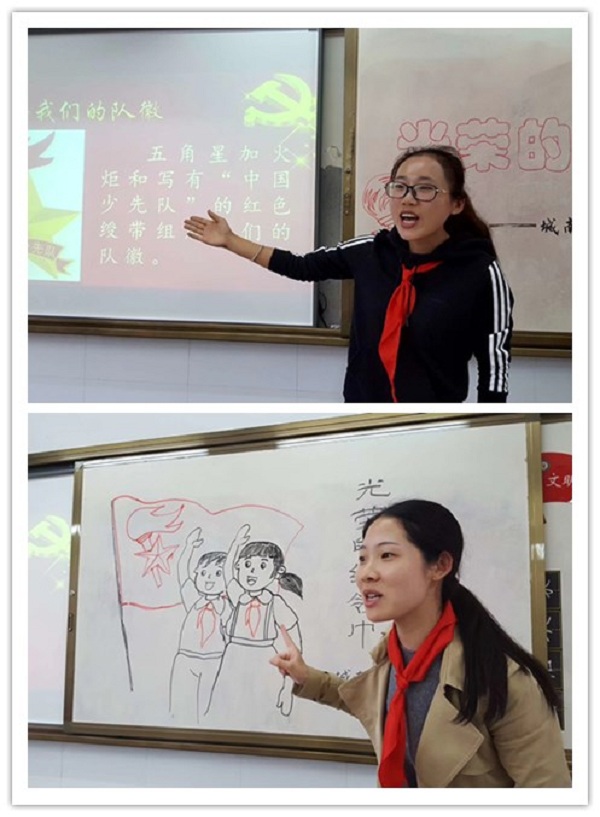 我们的队徽
五角星加火
炬和写有“中国
少先队”的红色
绶带组 们的
队徽。
先队
光荣的
——城南
光荣的红领巾
城
文明